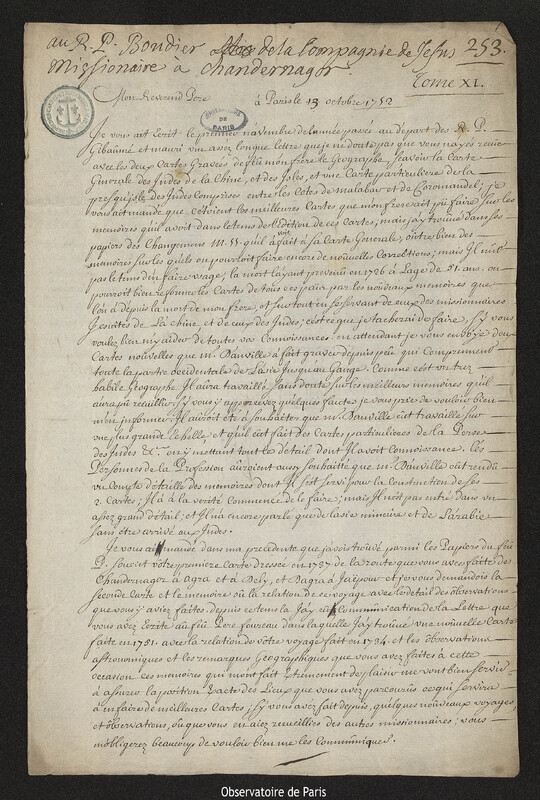 au R. P. Boudier de la Compagnie de Jesus 253.
Missionaire à Chandernagor. Tome XI.
Mon Reverend Pere à Paris le 13 octobre 1752
OBSERVATOIRE DE PARIS
Je vous ait Ecrit le premier novembre de lannée passé au départ des R. P.
Gibaumé et mauri une assez longue lettre que je ne doute pas que vous nayés reçue
avec les deux Cartes Gravés de feu mon frere le Geographe, sçavoir la Carte
Generale des Indes de la Chine, et des Isles, et une Carte particuliere de la
presquisle des Indes Comprises entre les Côtes de malabar et de Coromandel; je
vous ait mandé que cetoient les meilleures Cartes que mon frere avait pû faire sur les
memoires quil avoit dans le tems de l'Edition de ces Cartes; mais j'ay trouvé dans ses
papiers des Changemens M.SS. quil à fait à sa Carte Generale, outre bien des
memoires sur les quels on pourroit faire encore de nouvelles Corrections; mais Il n'eût
pas le tems den faire usage, la mort layant prevenu en 1726 à Lage de 51. ans. on
pourroit bien reformer les Cartes de tous ces païs par les nouveaux memoires que
lon à depuis la mort de mon frere, et sur tout en se servant de ceux des missionaires
Jesuites de La Chine, et de ceux des Indes; cest ce que je tacherai de faire, s'y vous
voulez bien my aider de toutes vos Connoissances. en attendant je vous envoÿe deux
Cartes nouvelles que m. Danville à fait graver depuis peu qui Comprennent
toute la partie occidentale de Lasie Jusqu'au Gange. Comme cest un tres
habile Geographe Il aura travaillé sans doute sur les meilleurs memoires quil
aura pû recuillir. s'y vous y appercevez quelques fautes je vous prie de vouloir bien
m'en informer. Il auroit été à souhaiter que m. Danville eût travaillé sur
une plus grande Echelle, et quil eût fait des Cartes particulieres de la Perse
des Indes &c. en y mettant tout le détail dont Il avoit Connoissance. Les
Personnes de la Profession auroient aussy souhaité que m. Danville eût rendu
un Compte d'etaillé des memoires dont Il s'est servi pour la Construction de ses
2. Cartes; Il à à la verité Commencé de le faire; mais Il n'est pas entré dans un
assez grand détail; et Il na encore parlé que de lasie mineure et de Larabie
sans être arrivé au Indes.
Je vous ait mandé dans ma precedente que j'avois trouvé parmi les Papiers du feu
P. souciet votre premiere Carte Dressée en 1737 de la route que vous avez faites de
Chandernagor à agra et à Dely, et Dagra à Jaëpour et je vous demandois la
seconde Carte et le memoire où la relation de ce voyage avec le détail des observations
que vous y aviez faites. depuis ce tems la J'ay eû Communication de la Lettre que
vous avez Ecrite au feu Pere foureau dans laquelle J'ay trouvé une nouvelle Carte
faite en 1751. avec la relation de votre voyage fait en 1734. et les observations
astronomiques et les remarques Geographiques que vous avez faites à cette
occasion. ces memoires qui m'ont fait Extremement de plaisir me vont bien servir
à assurer la position Exacte des Lieux que vous avez parcourûs ce qui servira
à en faire de meilleures Cartes; s'y vous avez fait depuis, quelques nouveaux voyages,
et observations, où que vous en aiez recueillies des autres missionaires; vous
m'obligerez beaucoup de vouloir bien me les Communiquer.
Observatoire de Paris